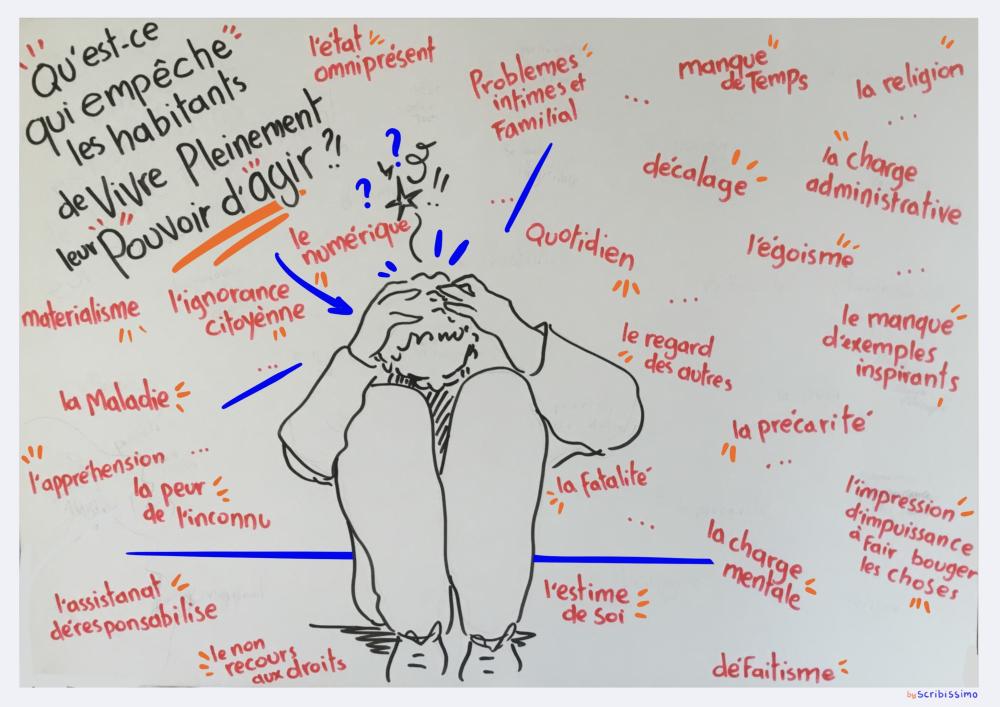 Qu'est-ce
qui empêche
les habitants
de Vivre Pleinement
leur Pouvoir d'agir ?!
l'état
omniprésent
Problemes
intimes et
Familial
...
manque
de Temps
la religion
...
décalage
la charge
administrative
? ?
!!
...
le
numérique
Quotidien
...
l'égoïsme
...
materialisme
l'ignorance
citoyenne
...
le regard
des autres
le manque
d'exemples
inspirants
la Maladie
...
la précarité
...
l'appréhension
la peur
de l'inconnu
la Fatalité
...
l'impression
d'impuissance
à fair bouger
les choses
la charge
mentale
l'assistanat
déresponsabilise
l'estime
de soi
le non
recours
aux droits
défaitisme
by Scribissimo